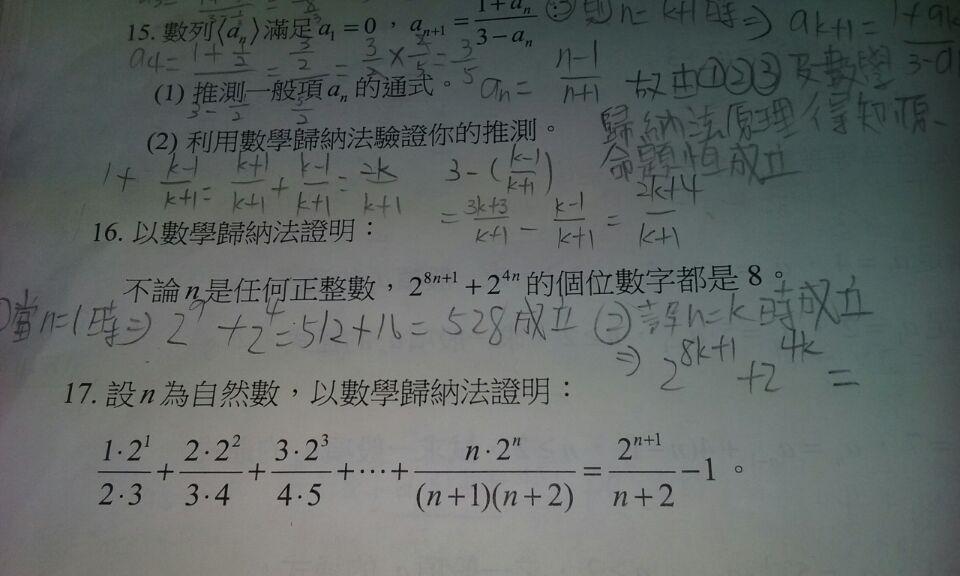 15. 數列⟨aₙ⟩滿足 a₁ = 0，aₙ₊₁ = (1+aₙ)/(3−aₙ) ③則n=k+1時⇒ aₖ₊₁ = 1+aₖ
a₄ = = = 3/2 × 2/5 = 3/5
(1) 推測一般項 aₙ 的通式。 aₙ = (n−1)/(n+1) 故由①②③及數學
歸納法原理得知原
(2) 利用數學歸納法驗證你的推測。
命題恒成立
1 + (k−1)/(k+1) = (k+1)/(k+1) + (k−1)/(k+1) = 2k/(k+1) 3 − ((k−1)/(k+1))
= (3k+3)/(k+1) − (k−1)/(k+1) = (2k+4)/(k+1)
16. 以數學歸納法證明：
不論 n 是任何正整數，2⁸ⁿ⁺¹ + 2⁴ⁿ 的個位數字都是 8。
①當n=1時⇒ 2⁹ + 2⁴ = 512+16 = 528成立 ②設n=k時成立
⇒ 2⁸ᵏ⁺¹ + 2⁴ᵏ =
17. 設 n 為自然數，以數學歸納法證明：
(1·2¹)/(2·3) + (2·2²)/(3·4) + (3·2³)/(4·5) + ⋯ + (n·2ⁿ)/((n+1)(n+2)) = 2ⁿ⁺¹/(n+2) − 1。